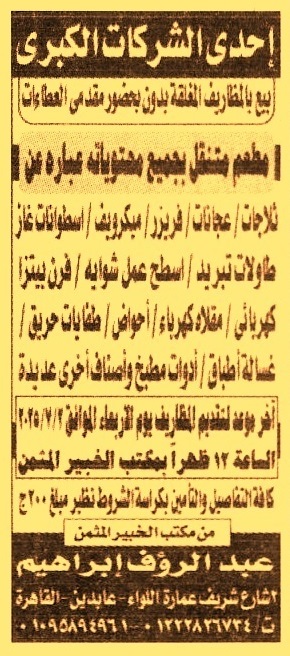 إحدى الشركات الكبرى
بيع بالمظاريف المغلقة بدون بحضور مقدمى العطاءات
مطعم متنقل بجميع محتوياته عباره عن
ثلاجات / عجانات / فريزر / ميكرويف / اسطوانات غاز
طاولات تبريد / اسطح عمل شوايه / فرن بيتزا
كهربائى / مقلاه كهرباء / أحواض / طفايات حريق /
غسالة أطباق / أدوات مطبخ وأصناف أخرى عديدة
آخر موعد لتقديم المظاريف يوم الاربعاء الموافق ٢٠٢٥/٧/٢
الساعة ١٢ ظهراً بمكتب الخبير المثمن
كافة التفاصيل والتأمين بكراسة الشروط نظير مبلغ ٢٠٠ ج
من مكتب الخبير المثمن
عبد الرؤف إبراهيم
٢ شارع شريف عمارة اللواء - عابدين - القاهرة
ت / ٠١٢٢٢٨٢٦٧٣٤ - ٠١٠٩٥٨٩٤٩٦١